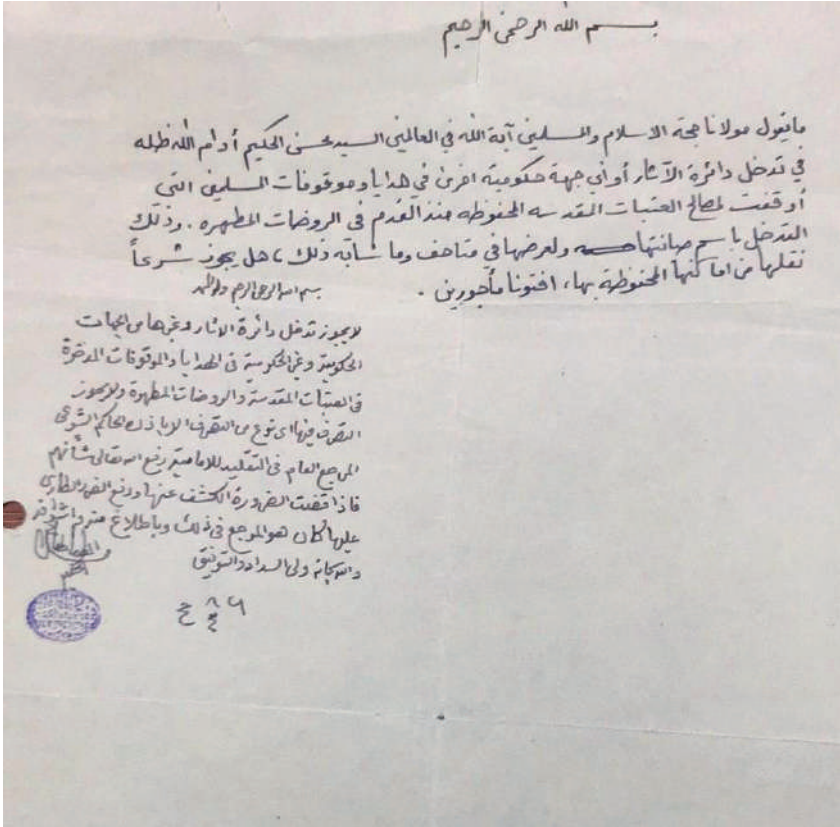 بسم الله الرحمن الرحيم
ما يقول مولانا حجة الاسلام والمسلمين آية الله في العالمين السيد محسن الحكيم أدام الله ظله
في تدخل دائرة الآثار أو أي جهة حكومية اخرى في هدايا وموقوفات المسلمين التي
أوقفت لمصالح العتبات المقدسه المحفوظه منذ القدم في الروضات المطهره . وذلك
التدخل باسم صيانتها ولعرضها في متاحف وما شابه ذلك ، هل يجوز شرعاً
نقلها من اماكنها المحفوظة بها ، افتونا مأجورين .
بسم الله الرحمن الرحيم وله الحمد
لا يجوز تدخل دائرة الاثار وغيرها من الجهات
الحكومية وغير الحكومية في الهدايا والموقوفات المدخرة
في العتبات المقدسة والروضات المطهرة ولا يجوز
التصرف فيها اي نوع من التصرف الا باذن الحاكم الشرعي
المرجع العام في التقليد للامامية رفع الله تعالى شأنهم
فاذا اقتضت الضرورة الكشف عنها ودفع الضرر الطارئ
عليها كان هو المرجع في ذلك وباطلاع منه واشرافه
والله سبحانه ولي السداد والتوفيق
الطباطبائي
الحكيم